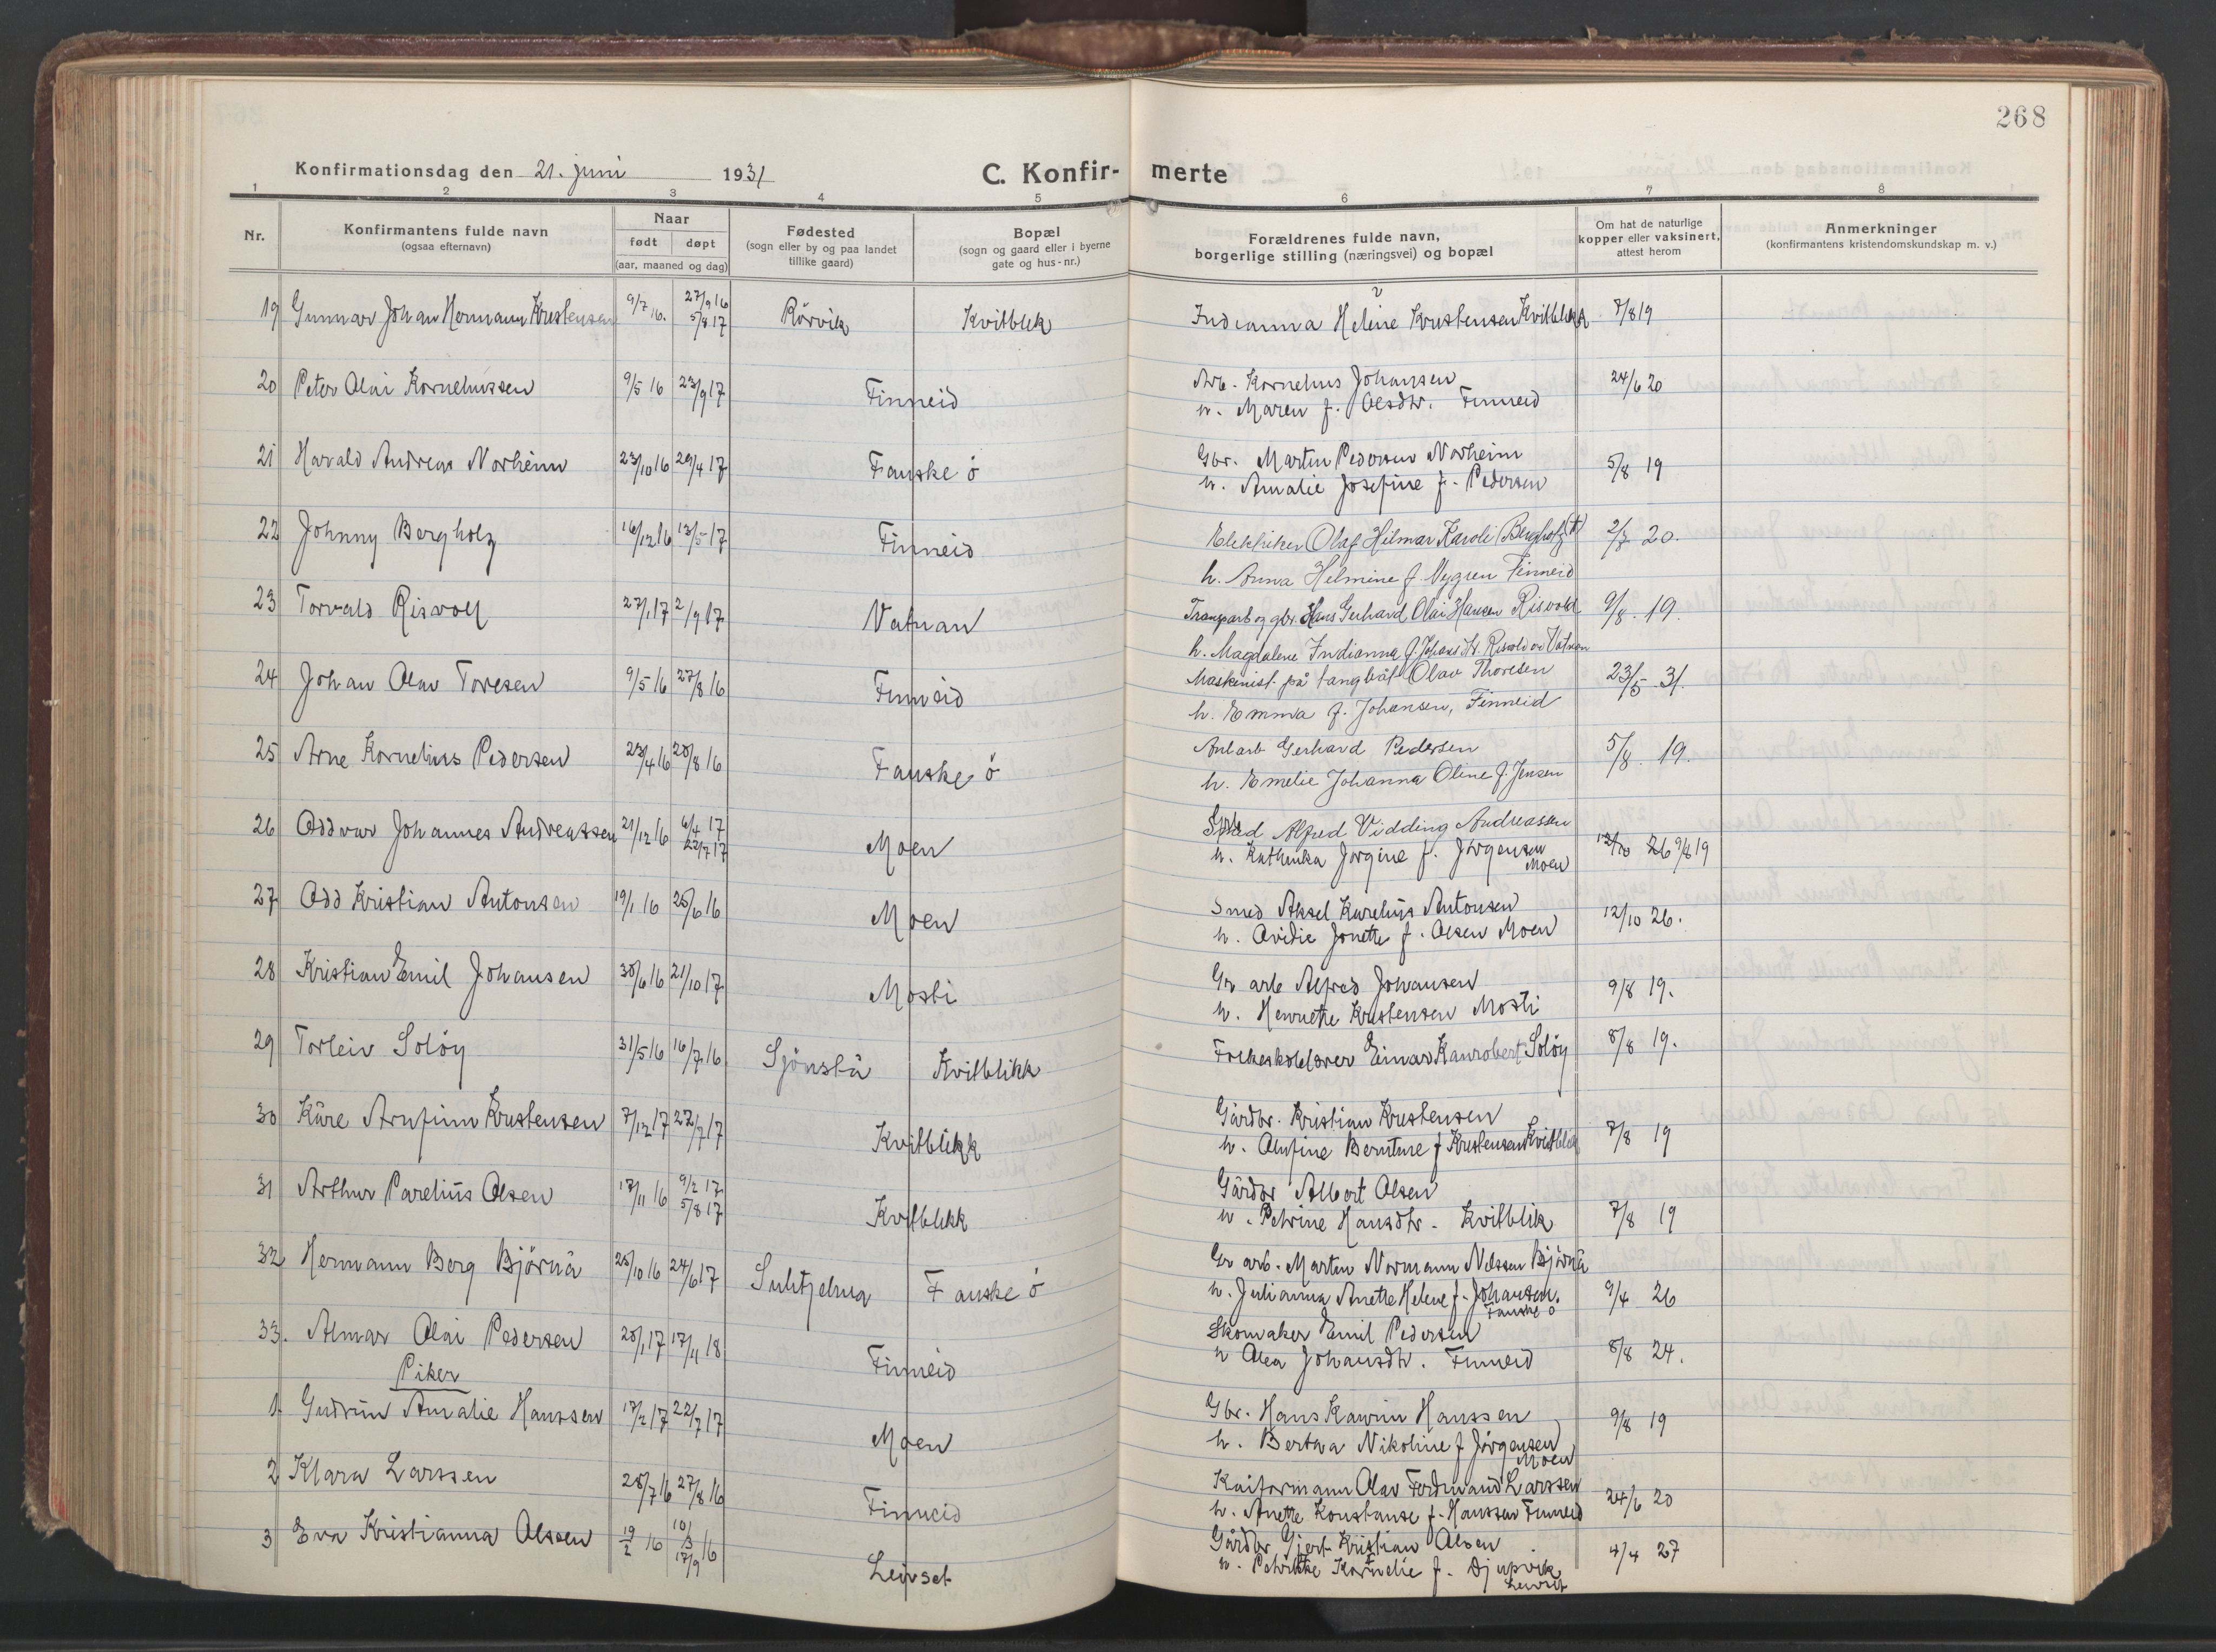 268
Konfirmationsdag den 21. juni 1931
C. Konfirmerte
1 2 3 4 5 6 7 8
Nr.
Konfirmantens fulde navn (ogsaa efternavn)
Naar født døpt (aar, maaned og dag)
Fødested (sogn eller by og paa landet tillike gaard)
Bopæl (sogn og gaard eller i byerne gate og hus-nr.)
Forældrenes fulde navn, borgerlige stilling (næringsvei) og bopæl
Om hat de naturlige kopper eller vaksinert, attest herom
Anmerkninger (konfirmantens kristendomskundskap m. v.)
19 Gunnar Johan Hermann Kristensen 9/7 16. 27/9 16 5/8 17 Rörvik Kvitblik Indianna Helene Kristensen Kvitblikk 7/8 19
20 Peter Olai Korneliussen 9/5 16 23/9 17 Finneid Arb. Kornelius Johansen
h. Maren f. Olsdtr. Finneid 24/6 20
21 Harald Andreas Norheim 23/10 16 29/4 17 Fauske ö Gbr. Martin Pedersen Norheim
h. Amalie Josefine f. Pedersen 5/8 19
22 Johnny Bergholz 16/12 16 13/5 17 Finneid Elektriker Olaf Hilmar Karoli Bergholz
h. Anna Helmine f. Nygren Finneid 20.
23 Torvald Risvoll 27/1 17 2/9 17 Vatnan Transparb og gbr. Hans Gerhard Olai Hansen Risvold
h. Magdalene Indianna f. Risvold Vatnan 9/8. 19.
24 Johan Olav Toresen 9/5 16 27/8 16 Finneid Maskinist på tangbåt Olav Thoresen
h. Emma f. Johansen, Finneid 23/5 31.
25 Arne Kornelius Pedersen 23/4 16 20/8 16 Fauske ö Anlarb Gerhard Pedersen
h. Emelie Johanna Oline f. Jensen 5/8. 19.
26 Oddvar Johannes Andreassen 21/12 16 6/4 17 22/7 17 Moen Alfred Vidding Andreassen
h. Kathinka Jorgine f. Jörgensen
Moen 12/10 26 9/8 19
27 Odd Kristian Antonsen 19/1 16 25/6 16 Moen Smed Aksel Karelius Antonsen
h. Ovidie Jonette f. Olsen Moen 12/10 26.
28 Kristian Emil Johansen 30/6 16 21/10 17 Mosti Gr arb Alfred Johansen
h. Henriette Kristensen Mosti 9/8 19.
29 Torleiv Solöy 31/5 16 16/7 16 Sjönstå Kvitblikk Folkeskolelærer Einar Kanrobert Solöy 8/8 19.
30 Kåre Arnfinn Kristensen 7/12 17 22/7 17 Kvitblikk Gårdbr. Kristian Kristensen
h. Olufine Berntine f Kristensen Kvitblik 7/8 19
31 Arthur Parelius Olsen 17/11 16 9/2 17 5/8 17 Kvitblikk Gårdbr Albert Olsen
h. Petrine Hansdtr. Kvitblik 7/8 19
32 Hermann Berg Björnå 25/10 16 24/6 17 Sulitjelma Fauske ö Gr arb. Martin Normann Nilssen Björnå
h. Julianna Anette Helene f. Johansen.
Fauske ö 9/4 26
33. Almar Olai Pedersen 28/1 17 17/11 18 Finneid Skomaker Emil Pedersen
h Olea Johansdtr. Finneid 8/8 24.
Piker
1. Gudrun Amalie Hanssen 17/2 17 22/7 17 Moen Gbr. Hans Hanssen
h. Bertha Nikoline f Jörgensen
Moen 9/8 19
2 Klara Larssen 28/7 16 27/8 16 Finneid Kaiformann Olav Ferdinand Larssen
h. Anette Konstanse f. Hanssen Finneid 24/6 20
3 Eva Kristianna Olsen 19/2 16 17/9 16 Leivset Gårdbr Gjert Kristian Olsen
h. Petrikke Kornelie f. Djupvik
Leivset 4/4 27